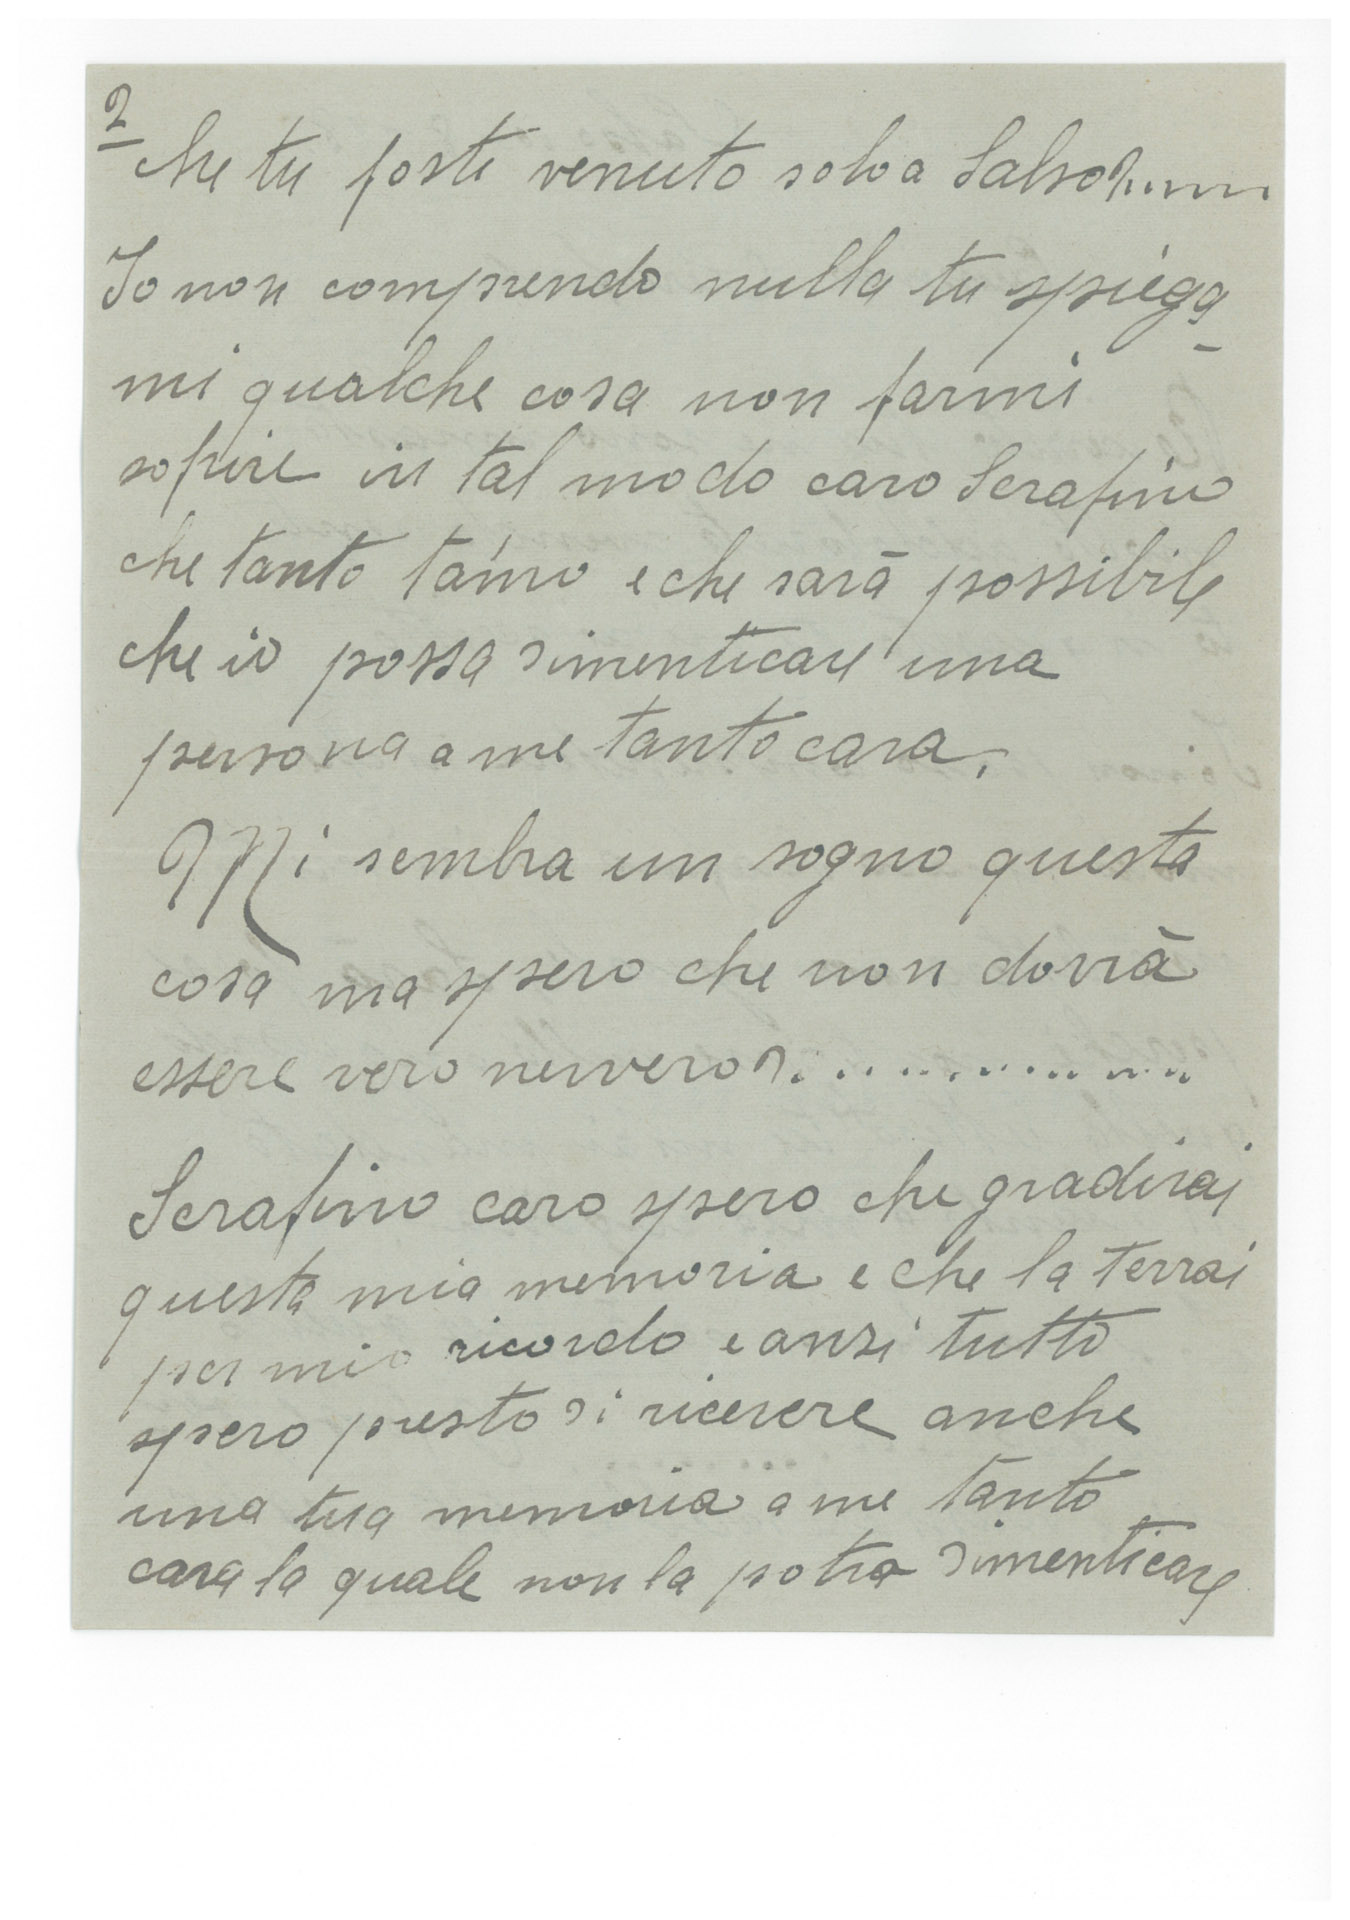 2
che tu foste venuto solo a Salso?......
Io non comprendo nulla tu spiega
mi qualche cosa non farmi
sofire in tal modo caro Serafino
che tanto ta'mo e che sarà possibile
che io possa dimenticare una
persona a me tanto cara.
Mi sembra un sogno questa
cosa ma spero che non dovrà
essere vero nevvero?..............
Serafino caro spero che gradirai
questa mia memoria e che la terrai
per mio ricordo e anzi tutto
spero presto di ricevere anche
una tua memoria a me tanto
cara la quale non la potrò dimenticare